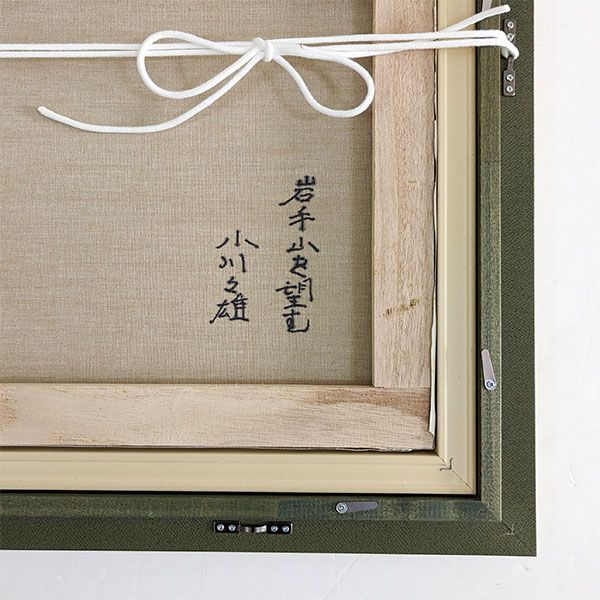 岩手山を望む
小川々雄